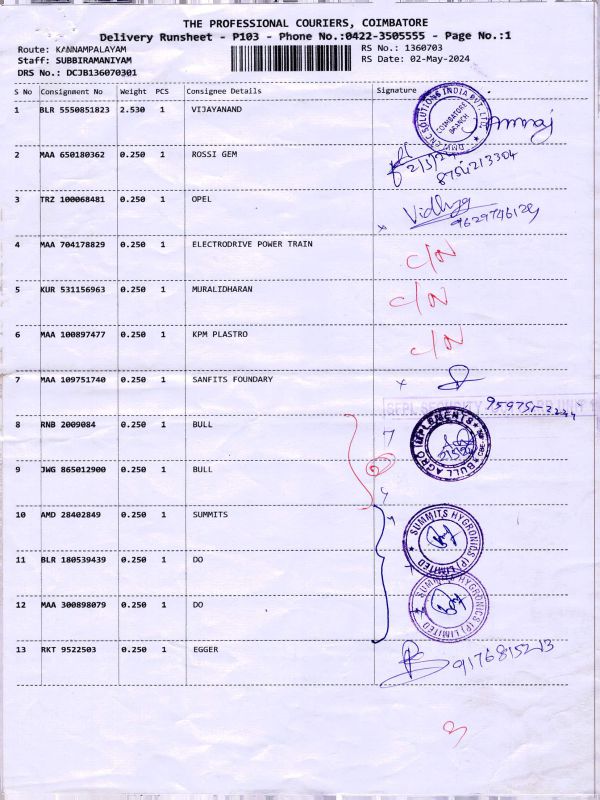 THE PROFESSIONAL COURIERS, COIMBATORE
Delivery Runsheet - P103 - Phone No.:0422-3505555 - Page No.:1
Route: KANNAMPALAYAM
Staff: SUBBIRAMANIYAM
DRS No.: DCJB136070301
RS No.: 1360703
RS Date: 02-May-2024
S No Consignment No Weight PCS Consignee Details Signature
1 BLR 5550851823 2.530 1 VIJAYANAND
COIMBATORE BRANCH
2 MAA 650180362 0.250 1 ROSSI GEM
2/5/24
8754213304
3 TRZ 100068481 0.250 1 OPEL
Vidhya
9629746129
4 MAA 704178829 0.250 1 ELECTRODRIVE POWER TRAIN C/N
5 KUR 531156963 0.250 1 MURALIDHARAN C/N
6 MAA 100897477 0.250 1 KPM PLASTRO C/N
7 MAA 109751740 0.250 1 SANFITS FOUNDARY
8 RNB 2009084 0.250 1 BULL
BULL AGRO IMPLEMENTS
9 JWG 865012900 0.250 1 BULL
10 AMD 28402849 0.250 1 SUMMITS
SUMMITS HYGRONICS (P) LIMITED
11 BLR 180539439 0.250 1 DO
12 MAA 300898079 0.250 1 DO
SUMMITS HYGRONICS (P) LIMITED
13 RKT 9522503 0.250 1 EGGER
9176815213
3